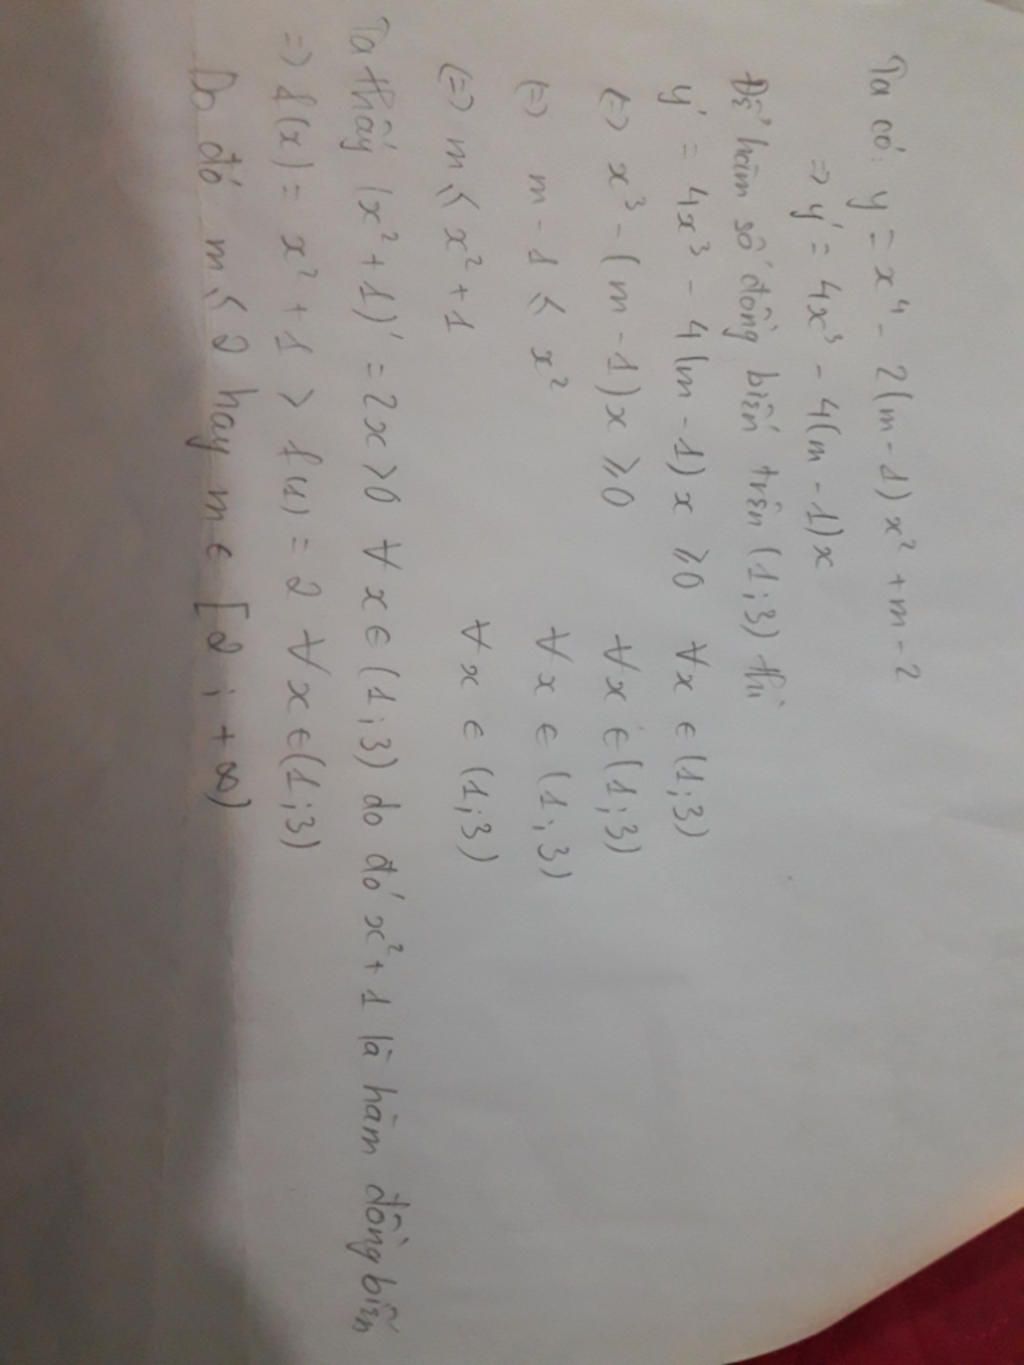 Ta có: y = x⁴ - 2(m-1)x² + m - 2
=> y' = 4x³ - 4(m-1)x
Để hàm số đồng biến trên (1;3) thì
y' = 4x³ - 4(m-1)x ⩾ 0 ∀x ∈ (1;3)
(=) x³ - (m-1)x ⩾ 0 ∀x ∈ (1;3)
(=) m - 1 ⩽ x² ∀x ∈ (1;3)
(=) m ⩽ x² + 1 ∀x ∈ (1;3)
Ta thấy (x² + 1)' = 2x > 0 ∀x ∈ (1;3) do đó x² + 1 là hàm đồng biến
=> f(x) = x² + 1 > f(1) = 2 ∀x ∈ (1;3)
Do đó m ⩽ 2 hay m ∈ [2; +∞)